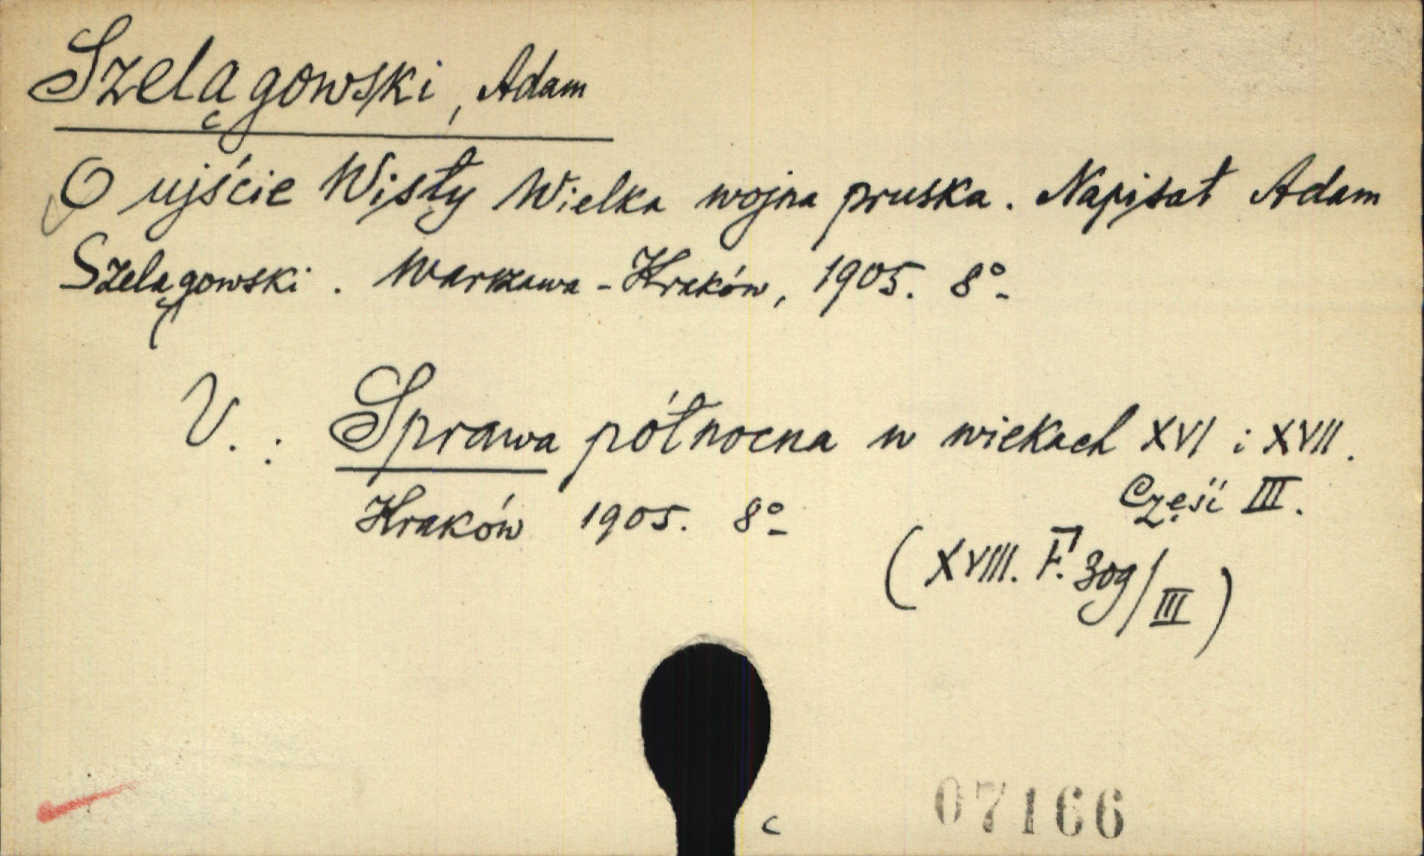 Szelągowski, Adam
O ujście Wisły Wielka wojna pruska. Napisał Adam
Szelągowski. Warszawa-Kraków, 1905. 8°
V.: Sprawa północna w wiekach XVI i XVII.
Część III.
Kraków 1905. 8°
(XVIII. F. 309/III)
c
07166